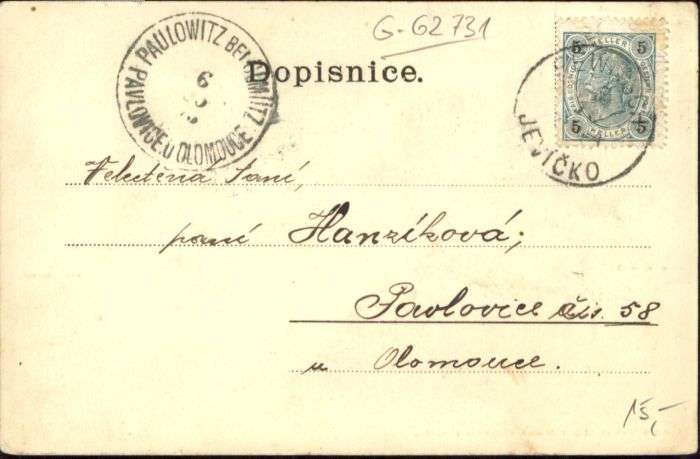 G-G2731
PAULOWITZ BEI OLMÜTZ
PAVLOVICE U OLOMOUCE
6
Dopisnice.
5 HELLER 5
5 HELLER 5
JEVÍČKO
Velectěná Paní,
paní Hanzíková;
Pavlovice čís. 58
u Olomouce.
15,-